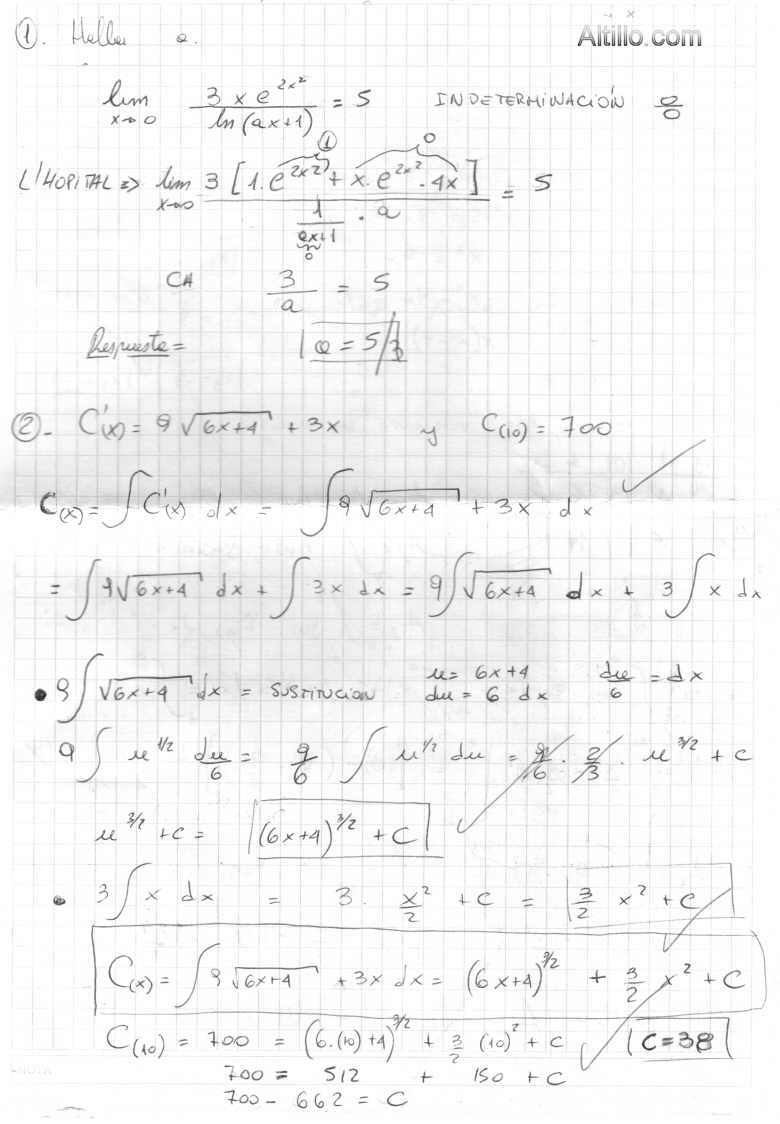 Altillo.com
①. Hallar a.
lim x→0 3xe^{2x²} / ln(ax+1) = 5 INDETERMINACIÓN 0/0
① 0
L'HOPITAL => lim x→0 3[1.e^{2x²} + x.e^{2x²}.4x] / (1/(ax+1) . a) = 5
0
CA 3/a = 5
Respuesta = a = 5/3
②- C'(x) = 9√(6x+4) + 3x y C(10) = 700
C(x) = ∫C'(x) dx = ∫9√(6x+4) + 3x dx
= ∫9√(6x+4) dx + ∫3x dx = 9∫√(6x+4) dx + 3∫x dx
• 9∫√(6x+4) dx = SUSTITUCION u = 6x+4 du/6 = dx
du = 6 dx
9∫u^{1/2} du/6 = 9/6 ∫u^{1/2} du = 9/6 . 2/3 . u^{3/2} + C
u^{3/2} + C = (6x+4)^{3/2} + C
• 3∫x dx = 3. x²/2 + C = 3/2 x² + C
C(x) = ∫9√(6x+4) + 3x dx = (6x+4)^{3/2} + 3/2 x² + C
C(10) = 700 = (6.(10)+4)^{3/2} + 3/2 (10)² + C C=38
700 = 512 + 150 + C
700 - 662 = C